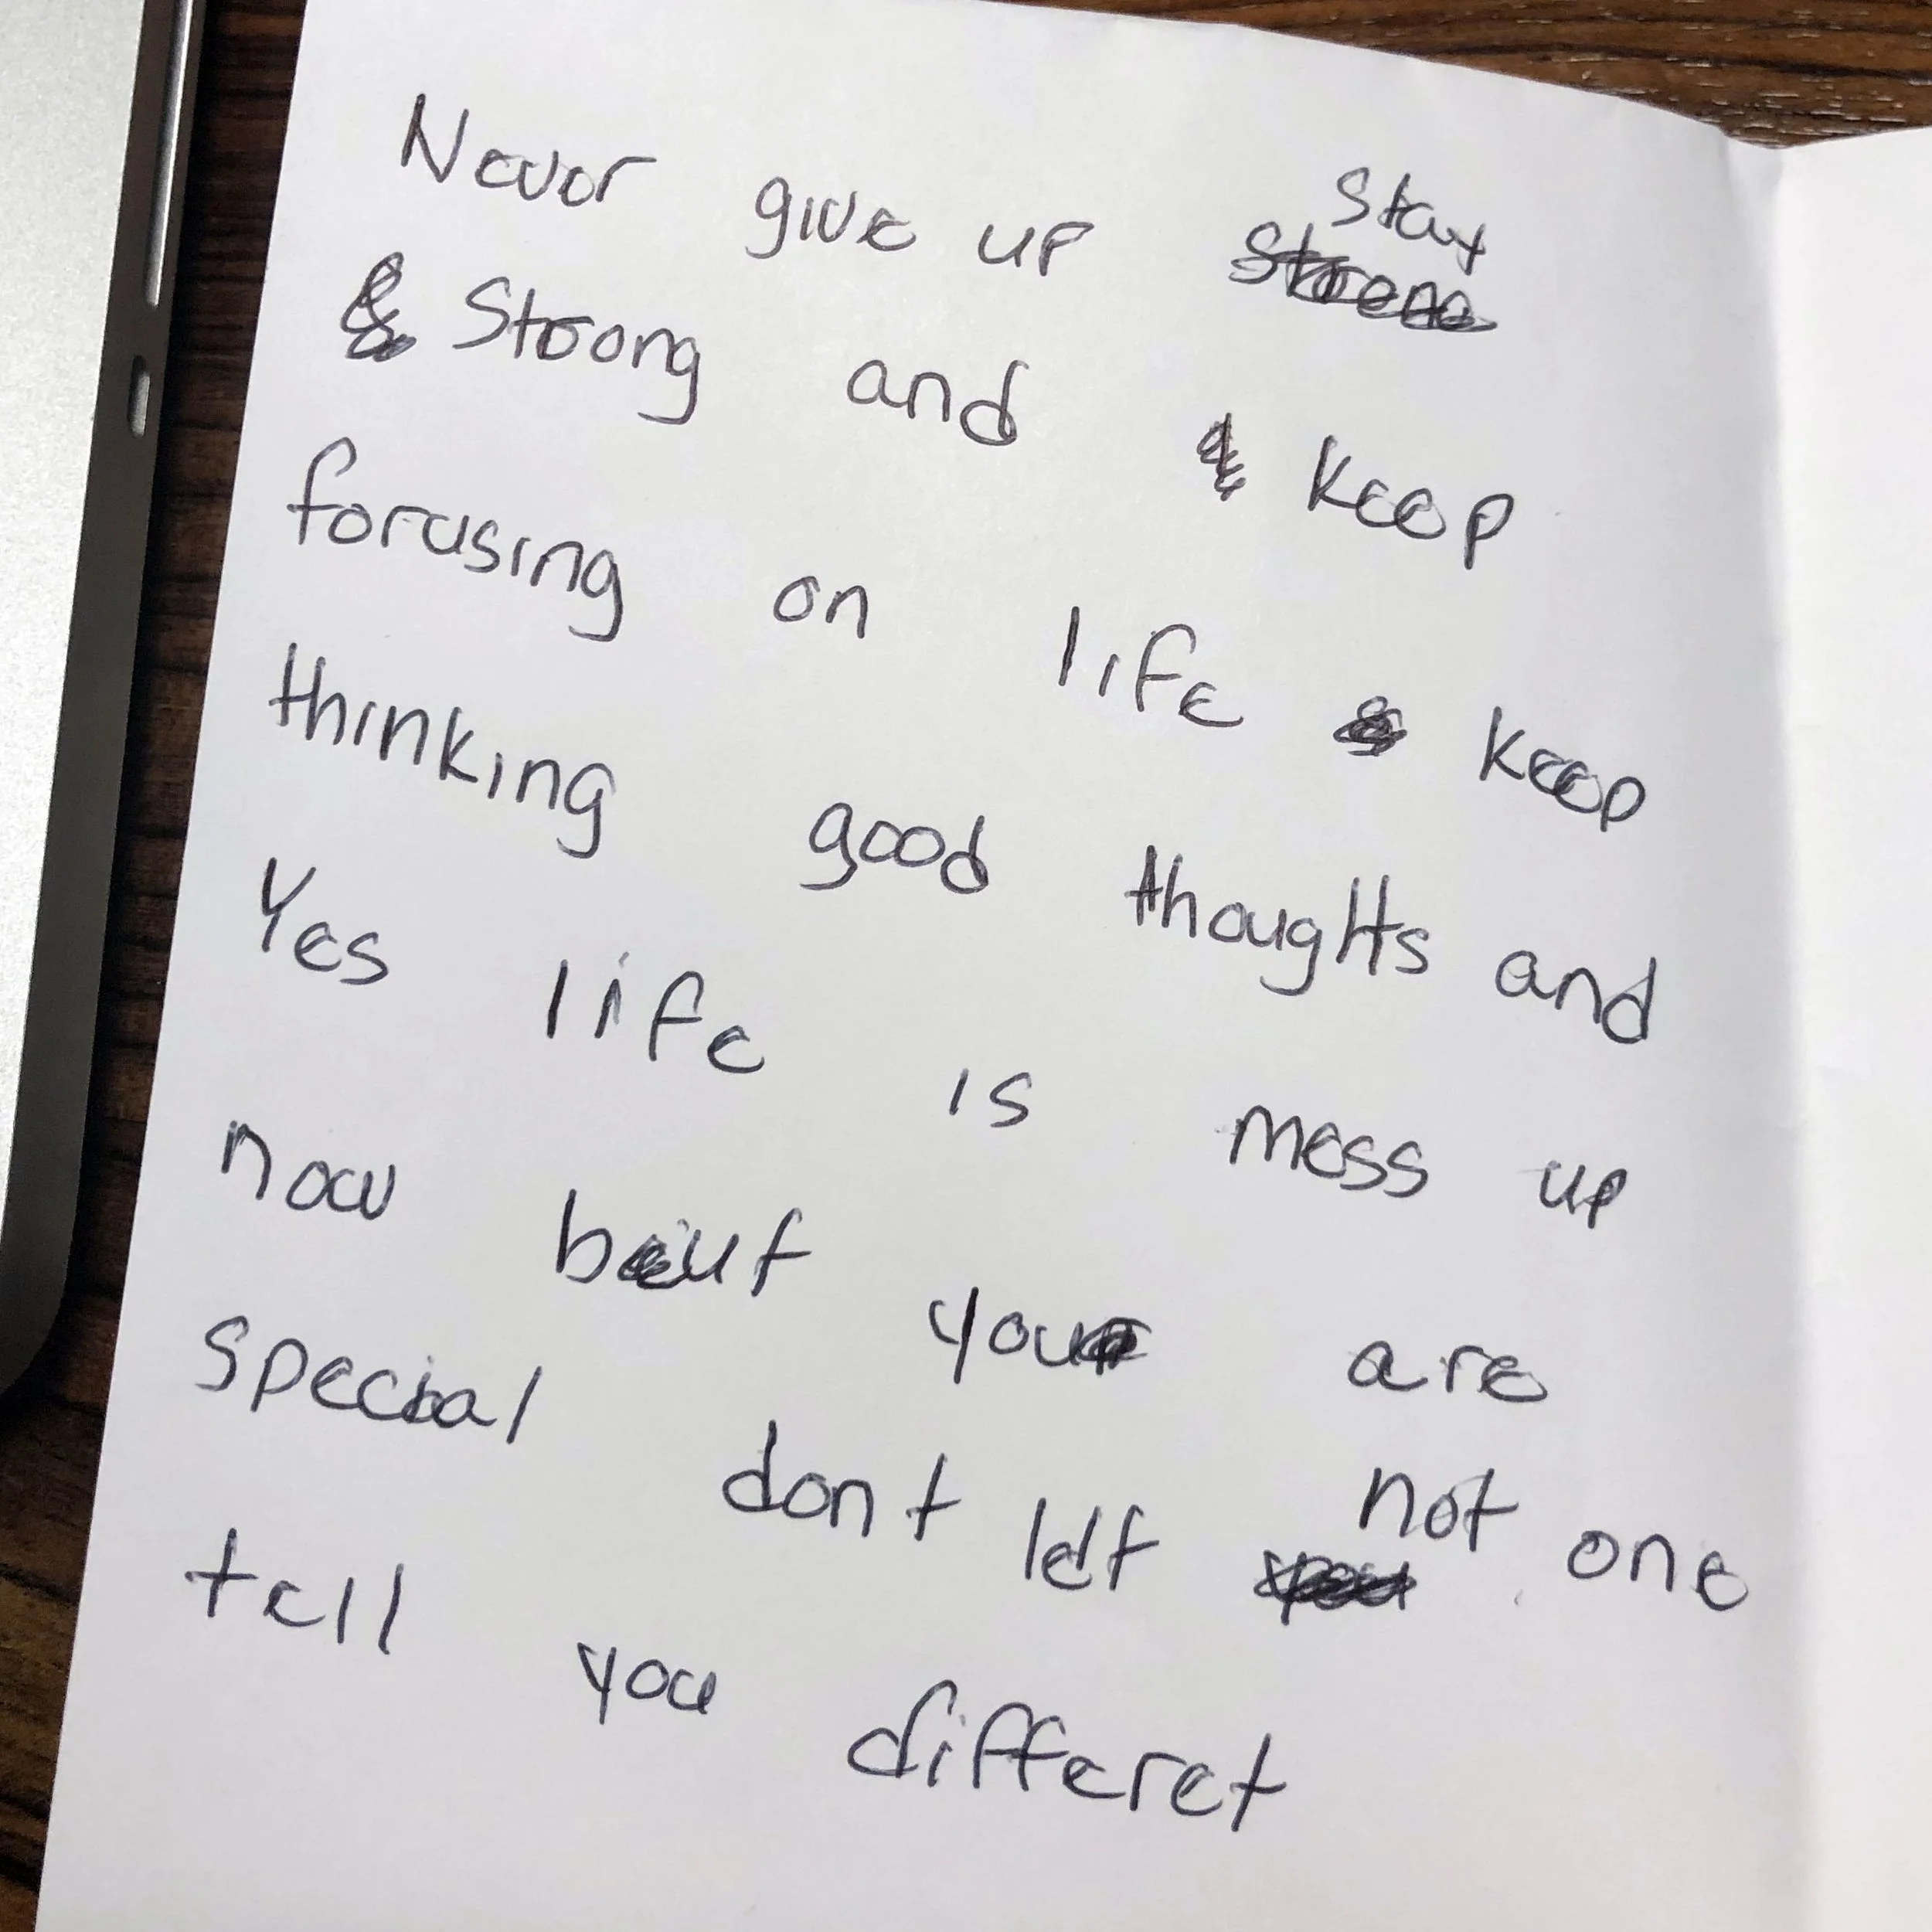 Never give up Stay
Strong and keep
forcusing on life keep
thinking good thoughts and
Yes life is mess up
now but you are
special dont let not one
tell you differet